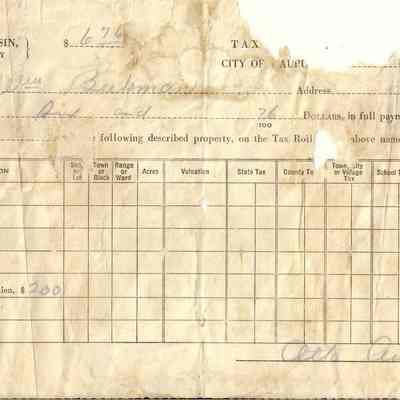 SIN, $ 6 76 TAX
CITY OF AUPU
Wm Buchman Address,
Six and 76/100 DOLLARS, in full paym
following described property, on the Tax Roll above name
ON Sec. or Lot Town or Block Range or Ward Acres Valuation State Tax County Ta Town, City or Village Tax School T
tion, $ 200